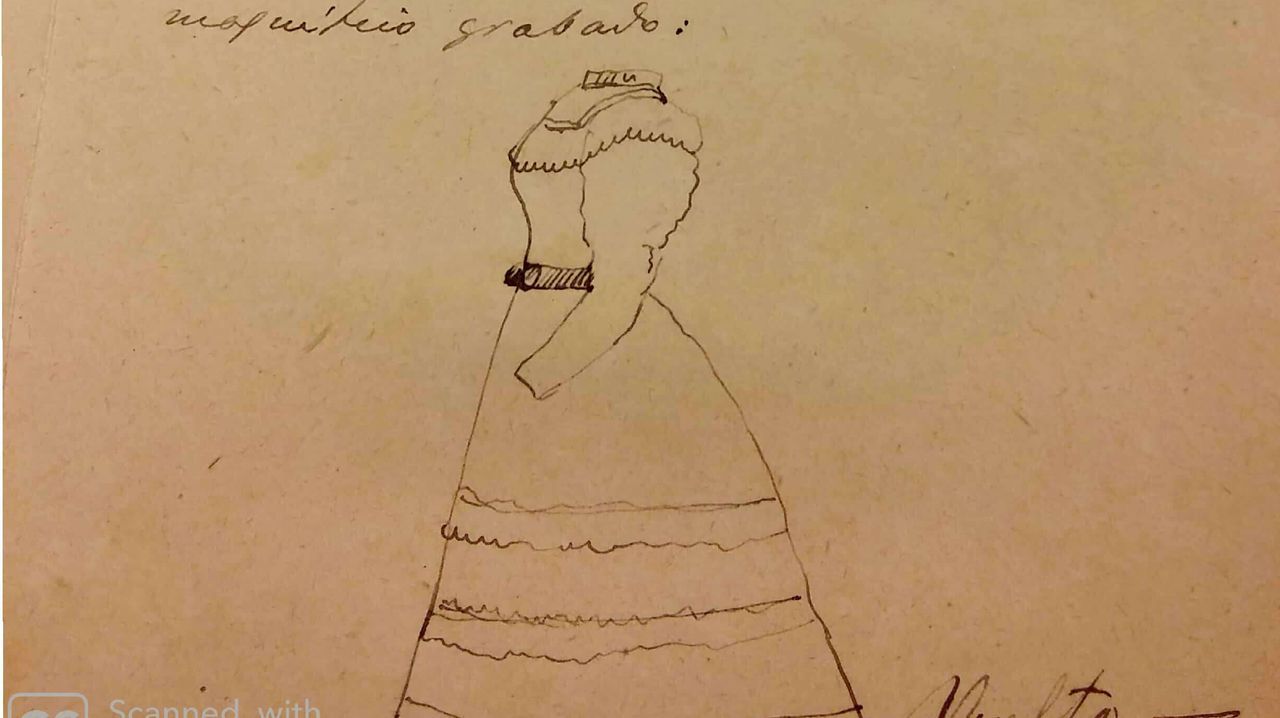 magnífico grabado:
Vuelta
Scanned with